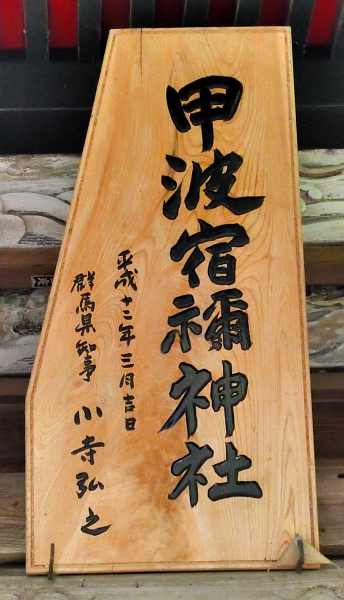 甲波宿禰神社
平成十二年三月吉日
群馬県知事 小寺弘之